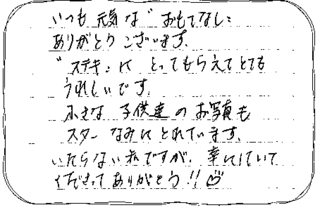 いつも 元気な〝おもてなし〟
ありがとうございます。
〝ステキ〟に とってもらえてとても
うれしいです。
小さな 子供達の お写真も
スターなみに とれています。
いたらない私ですが、幸にしていて
くださって ありがとう!!